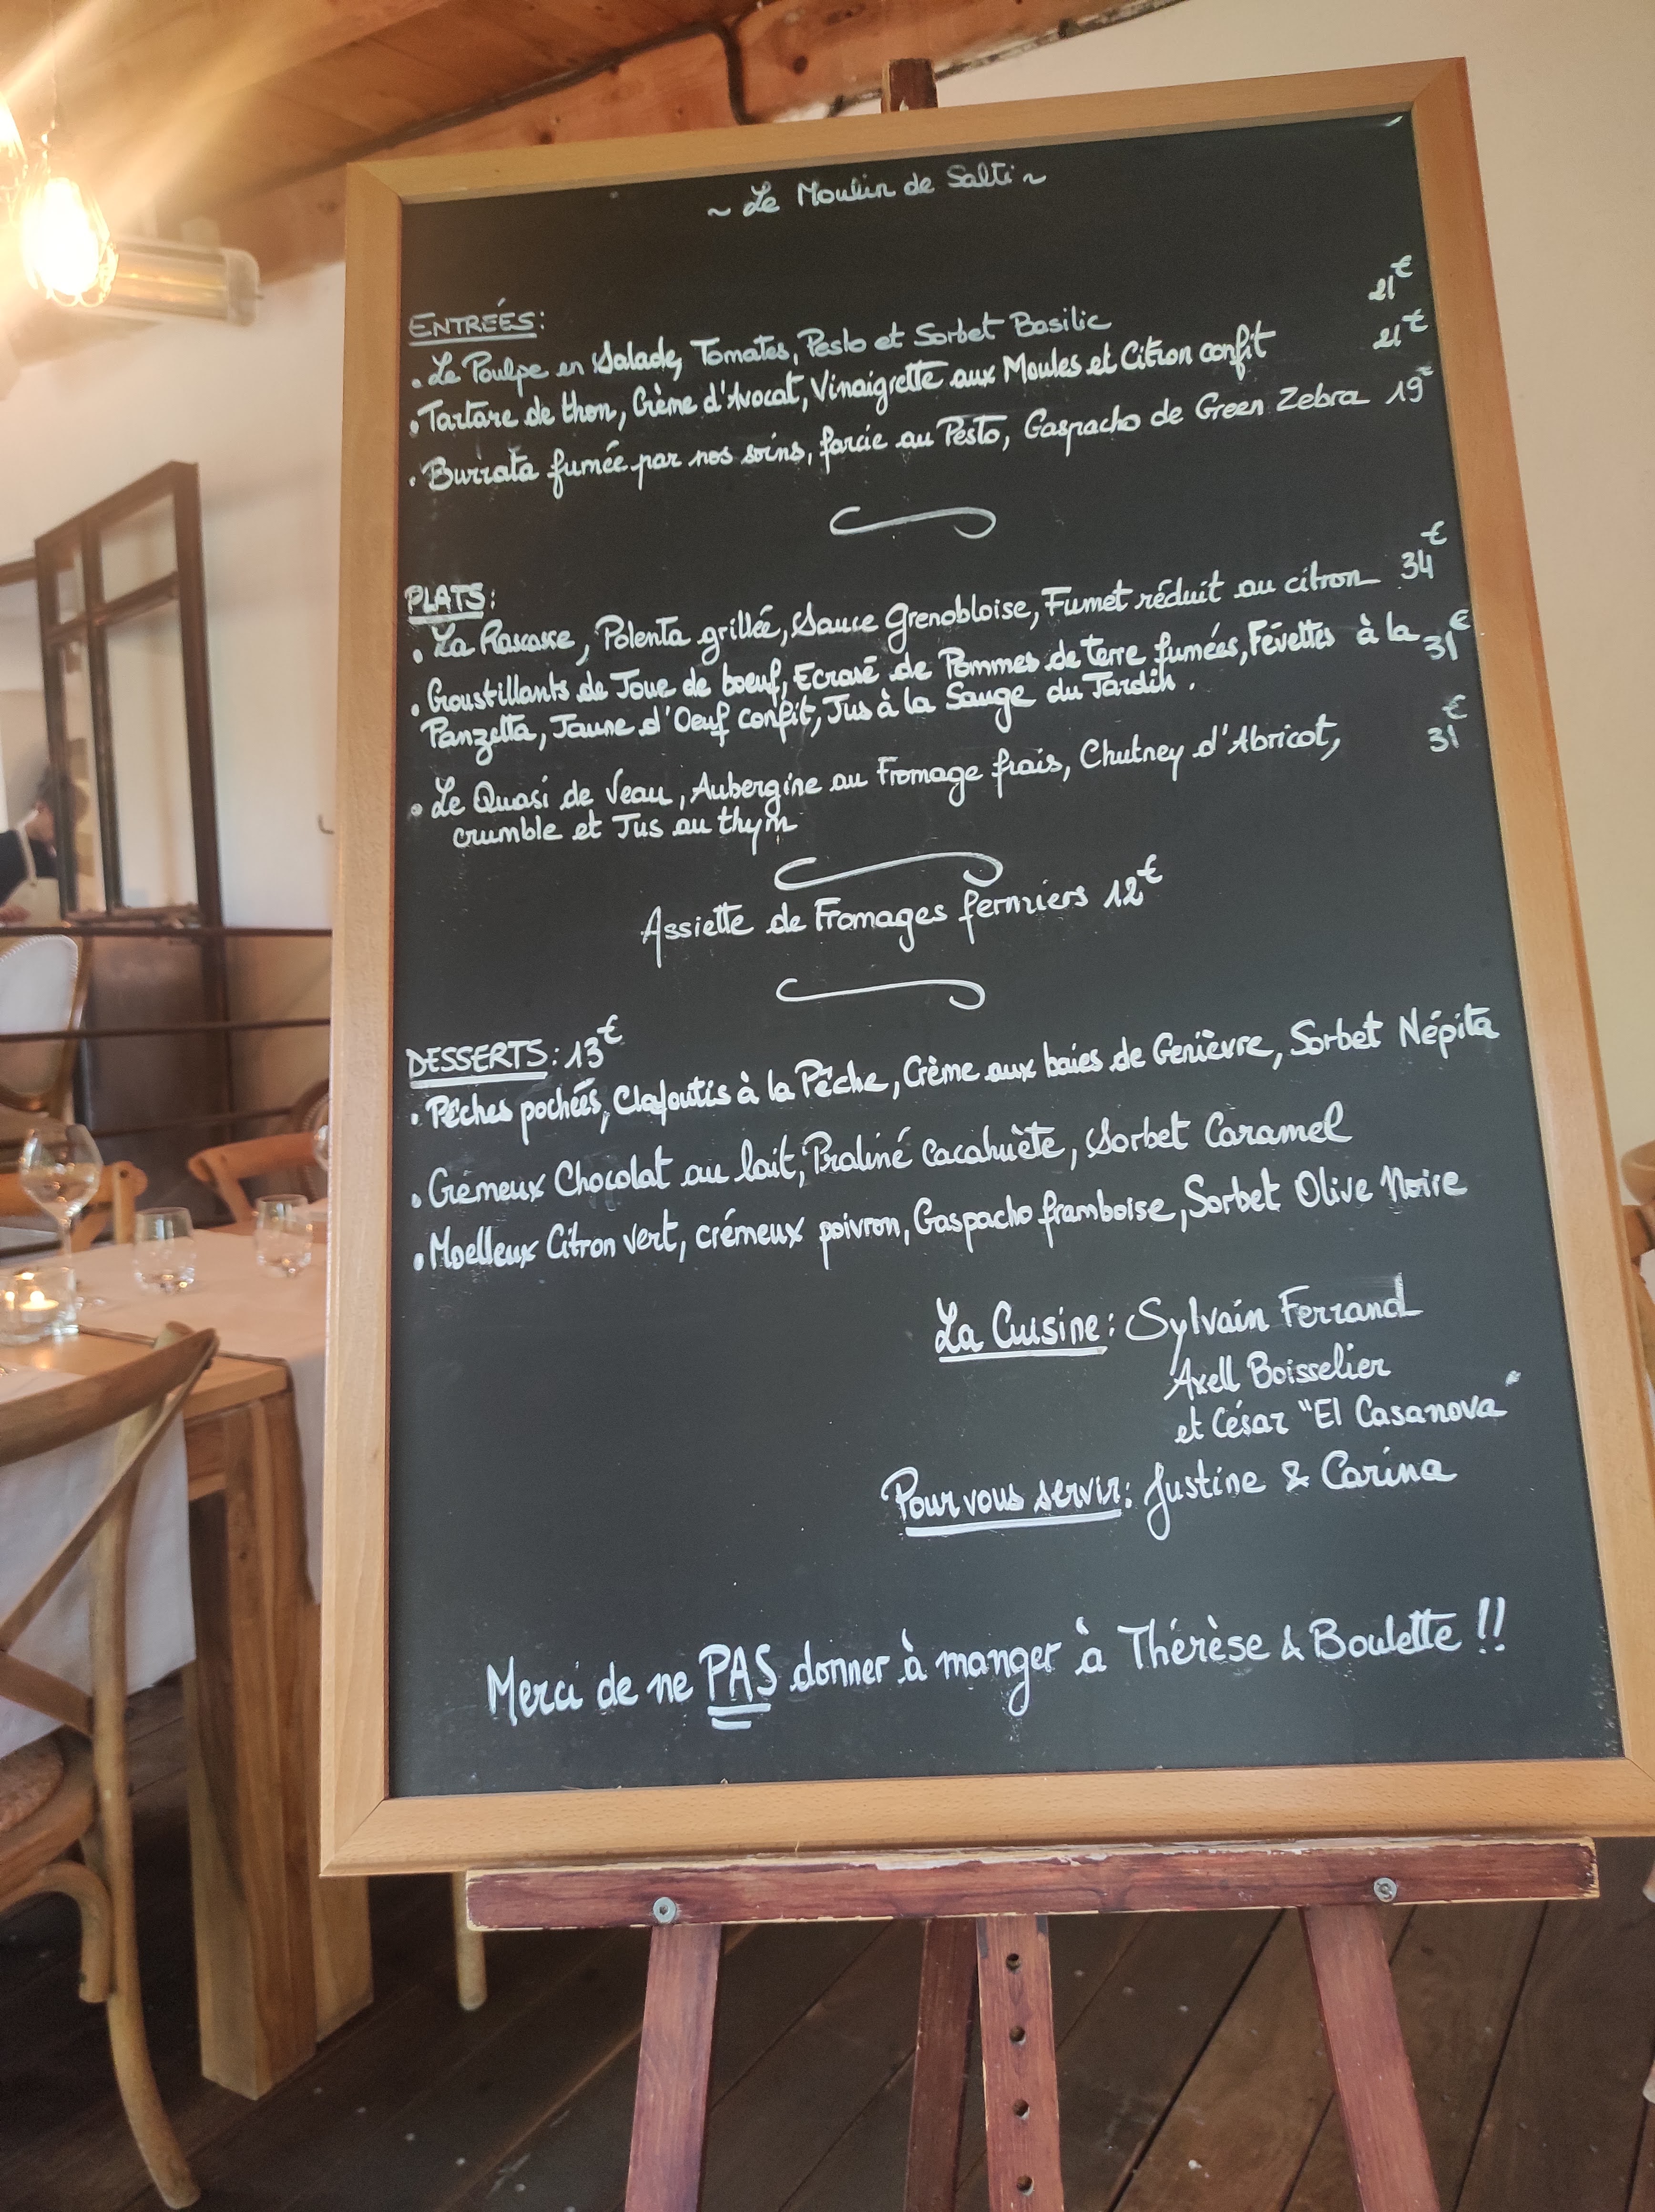 ~ Le Moulin de Salti ~
ENTRÉES:
• Le Poulpe en Salade, Tomates, Pesto et Sorbet Basilic 21€
• Tartare de thon, Crème d'Avocat, Vinaigrette aux Moules et Citron confit 21€
• Burrata fumée par nos soins, farcie au Pesto, Gaspacho de Green Zebra 19€
PLATS:
• La Rascasse, Polenta grillée, Sauce Grenobloise, Fumet réduit au citron 34€
• Croustillants de Joue de boeuf, Ecrasé de Pommes de terre fumées, Févettes à la 31€
Panzetta, Jaune d'Oeuf confit, Jus à la Sauge du Jardin.
• Le Quasi de Veau, Aubergine au Fromage frais, Chutney d'Abricot, 31€
crumble et Jus au thym
Assiette de Fromages fermiers 12€
DESSERTS: 13€
• Pêches pochées, Clafoutis à la Pêche, Crème aux baies de Genièvre, Sorbet Népita
• Crémeux Chocolat au lait, Praliné Cacahuète, Sorbet Caramel
• Moelleux Citron vert, crémeux poivron, Gaspacho framboise, Sorbet Olive Noire
La Cuisine: Sylvain Ferrand
Axell Boisselier
et César "El Casanova"
Pour vous servir: Justine & Carina
Merci de ne PAS donner à manger à Thérèse & Boulette !!